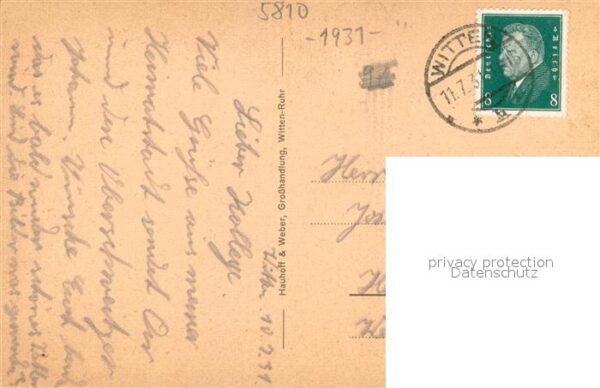 5810
-1931-
WITTEN
11.7.31
Deutsches Reich
8 8
Witten 10.7.31
Lieber Kollege.
Viele Grüße aus meiner
Heimatstadt sendet Dir
und den
Wünsche Euch
das es bald wieder schönes Wetter
wird und
Hauhoff & Weber, Großhandlung, Witten-Ruhr
Herr
Jos
H
privacy protection
Datenschutz